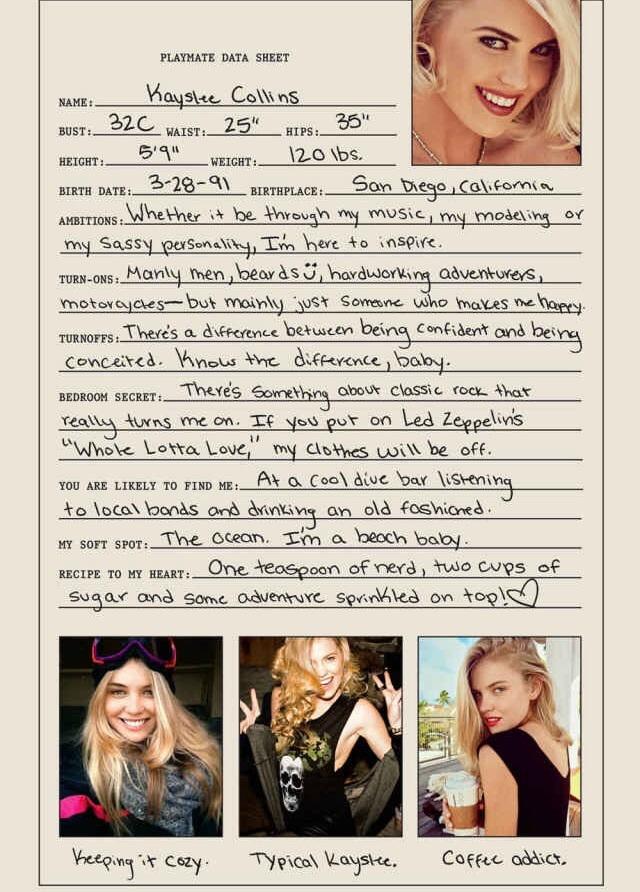 PLAYMATE DATA SHEET
NAME: Kayslee Collins
BUST: 32C WAIST: 25" HIPS: 35"
HEIGHT: 5'9" WEIGHT: 120 lbs.
BIRTH DATE: 3-28-91 BIRTHPLACE: San Diego, California
AMBITIONS: Whether it be through my music, my modeling or
my sassy personality, I'm here to inspire.
TURN-ONS: Manly men, beards ☺, hardworking adventurers,
motorcycles—but mainly just someone who makes me happy.
TURNOFFS: There's a difference between being confident and being
conceited. Know the difference, baby.
BEDROOM SECRET: There's something about classic rock that
really turns me on. If you put on Led Zeppelin's
"Whole Lotta Love," my clothes will be off.
YOU ARE LIKELY TO FIND ME: At a cool dive bar listening
to local bands and drinking an old fashioned.
MY SOFT SPOT: The ocean. I'm a beach baby.
RECIPE TO MY HEART: One teaspoon of nerd, two cups of
sugar and some adventure sprinkled on top! ♡
Keeping it cozy.
Typical Kayslee.
Coffee addict.